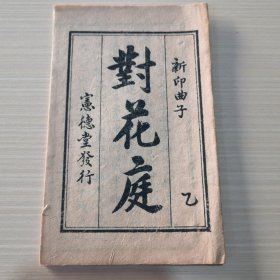 新印曲子
乙
對花庭
憲德堂發行